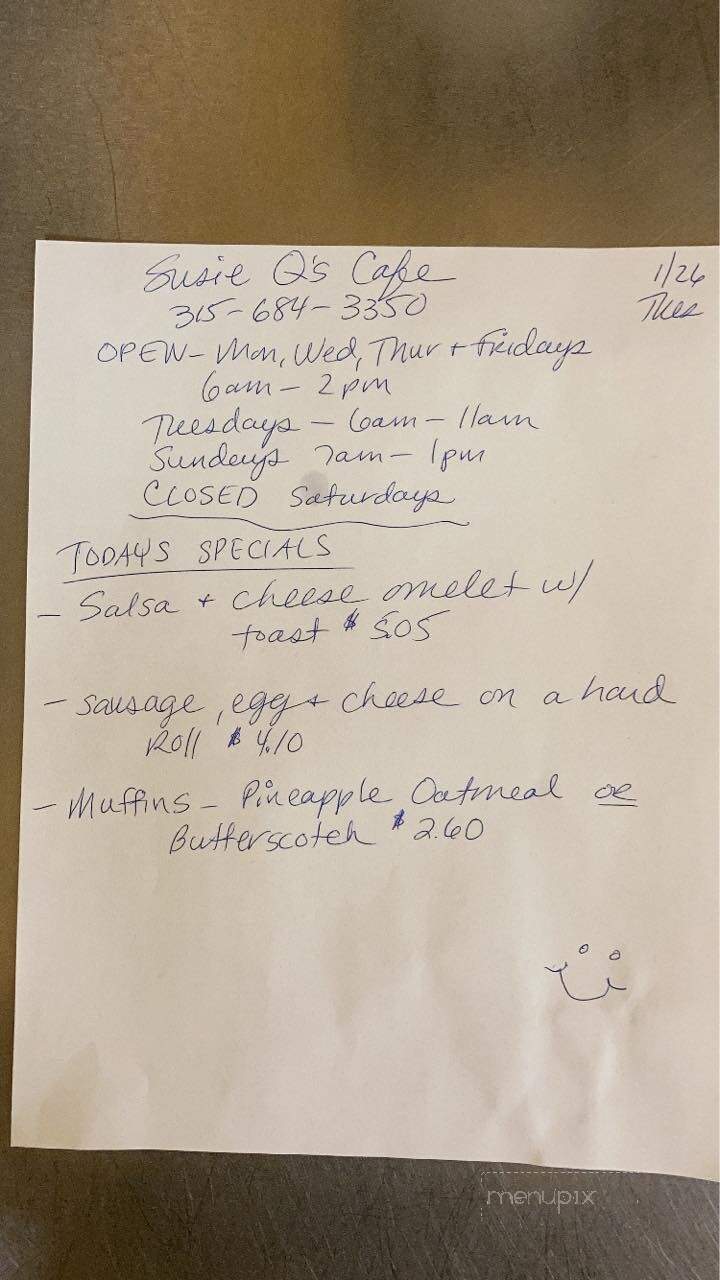 Susie Q's Cafe
1/26
315-684-3350
Tues
OPEN - Mon, Wed, Thur + Fridays
6am - 2pm
Tuesdays - 6am - 11am
Sundays 7am - 1pm
CLOSED Saturdays
TODAYS SPECIALS
- Salsa + cheese omelet w/
toast $5.05
- sausage, egg + cheese on a hard
Roll $4.10
- Muffins - Pineapple Oatmeal or
Butterscotch $2.60
menupix